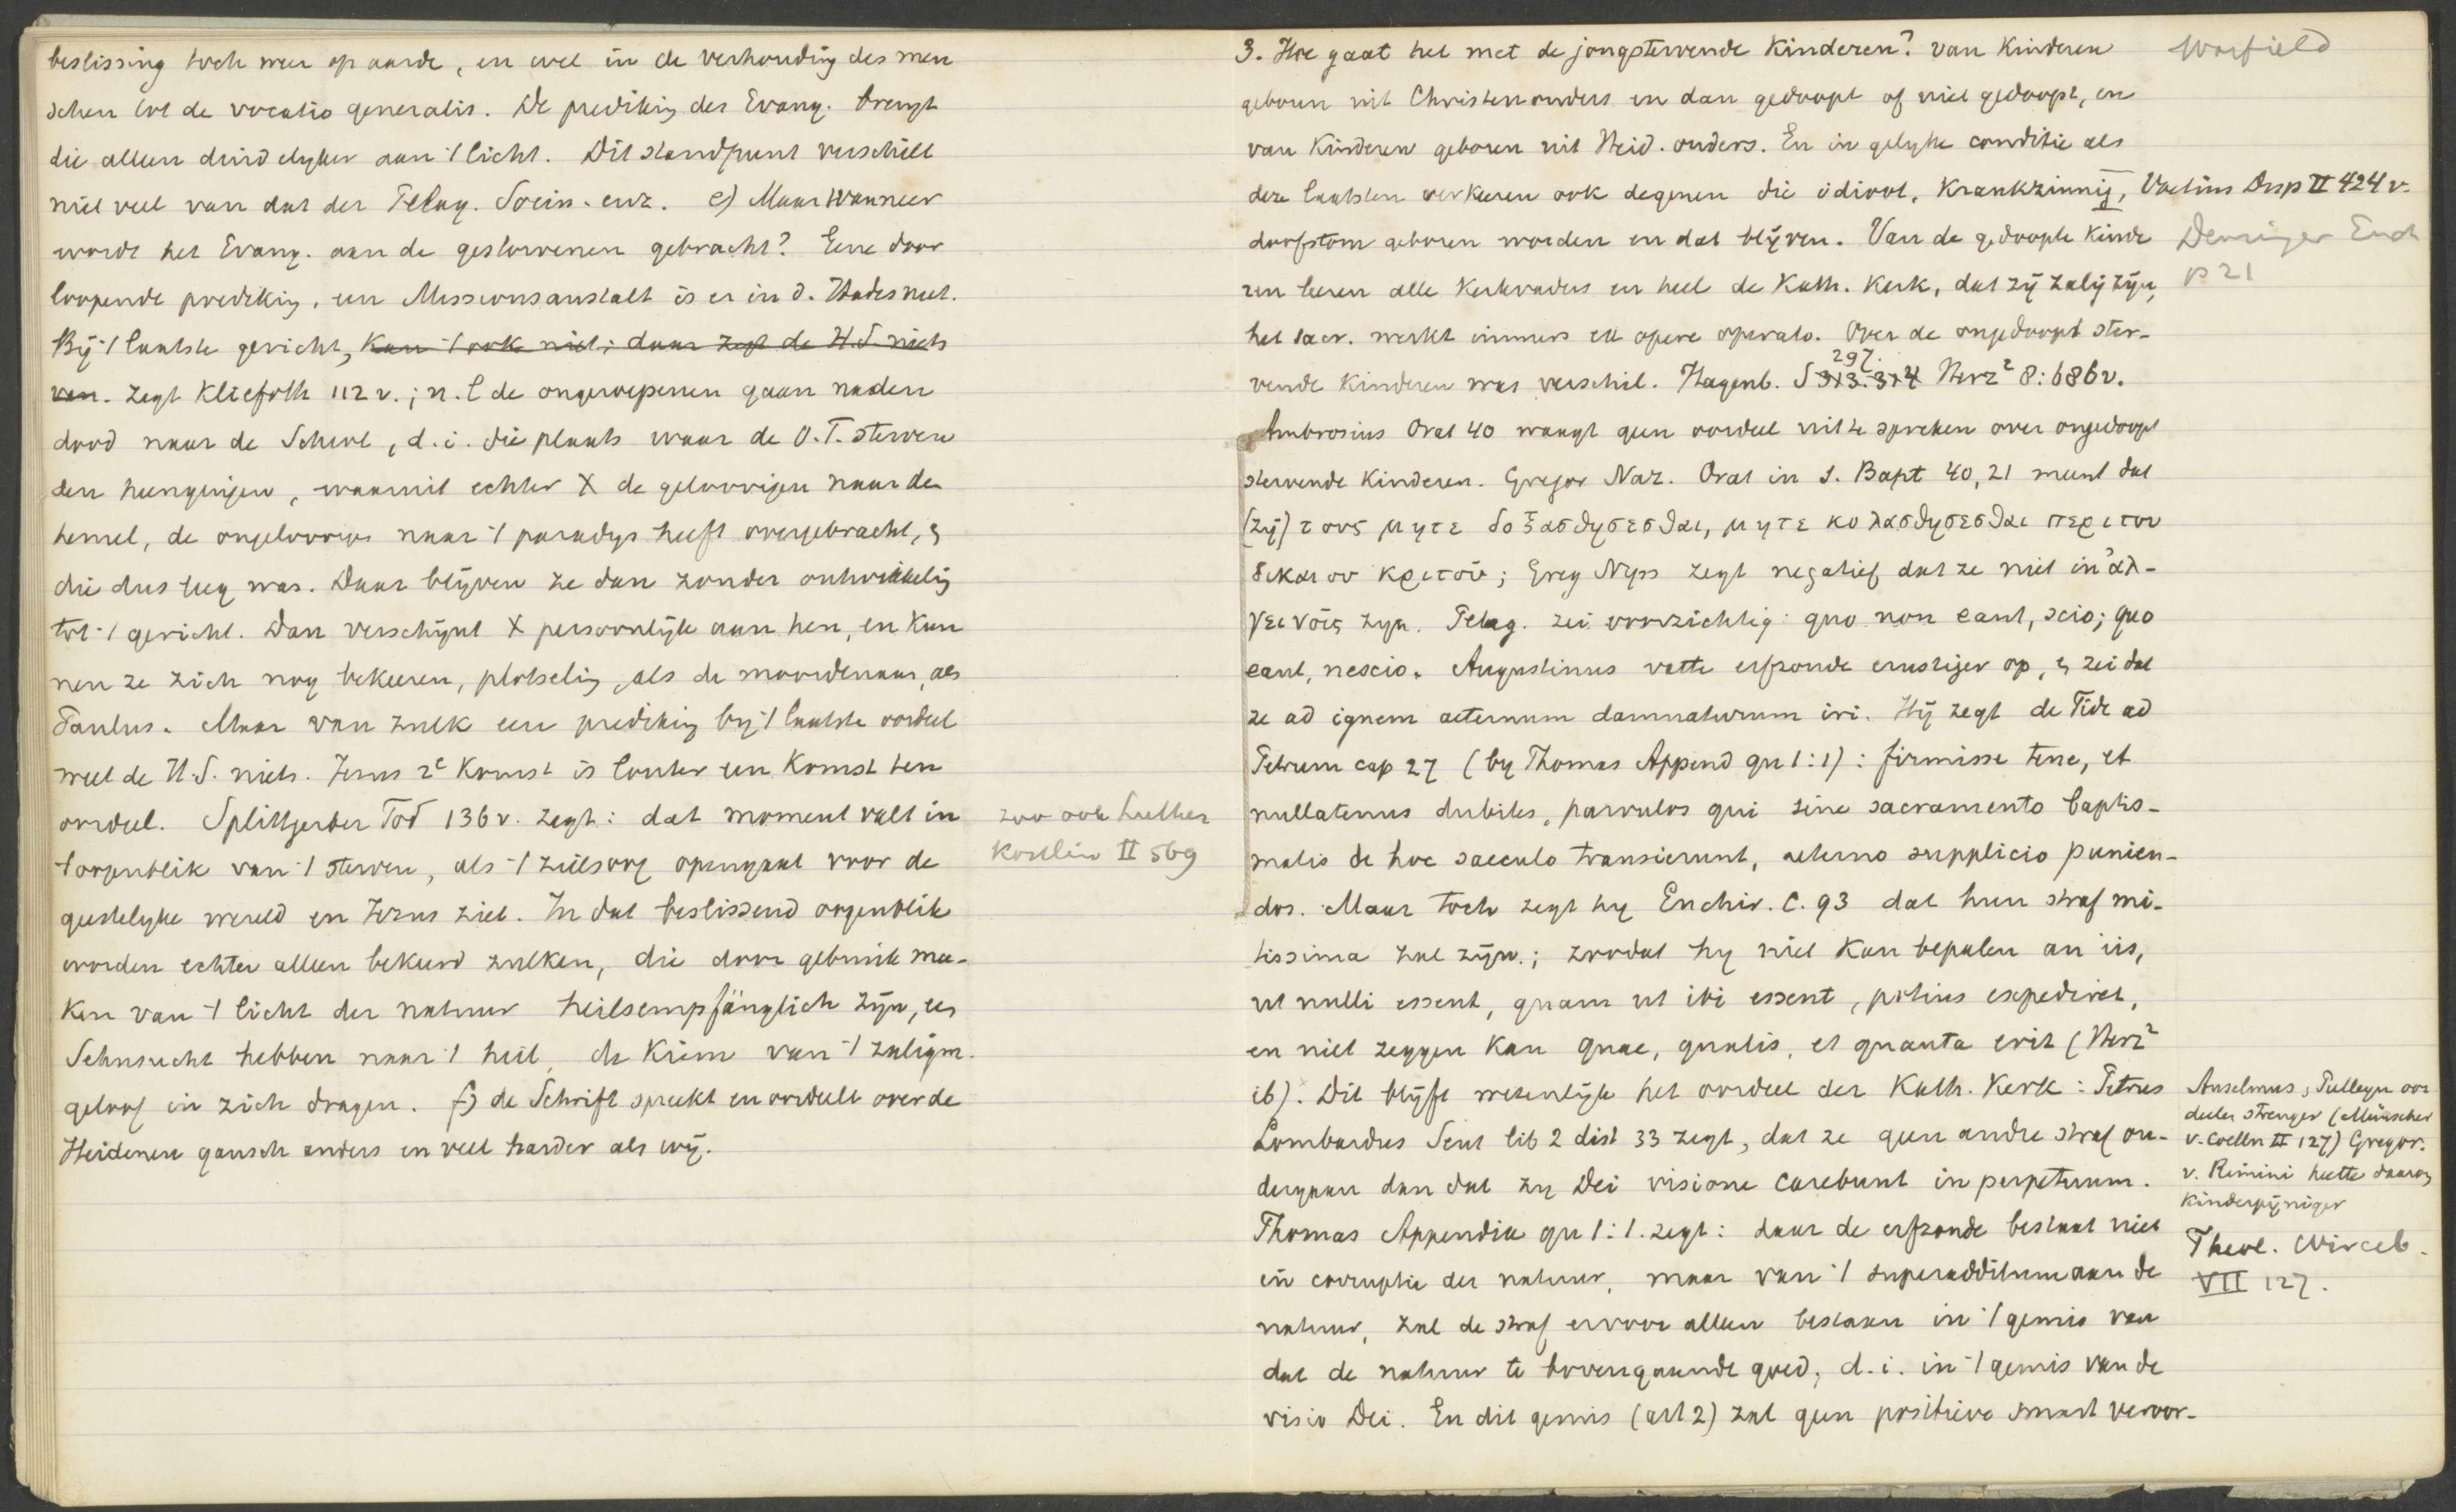 beslissing toch weer op aarde, en wel in de verhouding des men
schen tot de vocatio generalis. De prediking des Evang. brengt
die alleen duidelyker aan 't licht. Dit standpunt verschilt
niet veel van dat der Pelag. Socin. enz. e) Maar wanneer
wordt het Evang. aan de gestorvenen gebracht? Eene door
loopende prediking, een Missionsanstalt is er in d. Hades niet.
By 't laatste gericht, kan 't ook niet; daar zegt de H.S. niets
van. zegt Kliefoth 112 v.; n.l de ongeroepenen gaan na den
dood naar de Scheol, d.i. die plaats waar de O.T. sterven
den heengingen, waaruit echter X de geloovigen naar den
hemel, de ongeloovigen naar 't paradys heeft overgebracht, &
die dus leeg was. Daar blyven ze dan zonder ontwikkeling
tot 't gericht. Dan verschynt X persoonlyk aan hen, en kun
nen ze zich nog bekeeren, plotseling, als de moordenaar, als
Paulus. Maar van zulk een prediking by 't laatste oordeel
weet de H.S. niets. Jezus 2e komst is louter een komst ten
oordeel. Splittgerber Tod 136 v. zegt: dat moment valt in
't oogenblik van 't sterven, als 't zielsoog opengaat voor de
geestelyke wereld en Jezus ziet. In dat beslissend oogenblik
worden echter alleen bekeerd zulken, die door gebruik ma-
ken van 't licht der natuur heilsempfänglich zyn, een
Sehnsucht hebben naar 't heil, de kiem van 't zaligm.
geloof in zich dragen. f) de Schrift spreekt en oordeelt over de
Heidenen gansch anders en veel harder als wy.
zoo ook Luther
Köstlin II 569
3. Hoe gaat het met de jongstervende kinderen? van kinderen
geboren uit Christenouders en dan gedoopt of niet gedoopt, en
van kinderen geboren uit Heid. ouders. En in gelyke conditie als
deze laatsten verkeeren ook degenen die idioot, krankzinnig,
doofstom geboren worden en dat blyven. Van de gedoopte kinde
ren leeren alle kerkvaders en heel de Kath. Kerk, dat zy zalig zyn,
het sacr. werkt immers ex opere operato. Over de ongedoopt ster-
vende kinderen was verschil. Hagenb. S 313. 314 297. Herz² 8:686 v.
Ambrosius Orat 40 waagt geen oordeel uit te spreken over ongedoopt
stervende kinderen. Gregor Naz. Orat in S. Bapt 40,21 meent dat
(zy) τους μητε δοξασθησεσθαι, μητε κολασθησεσθαι περι του
δικαιου κριτοῦ; Greg Nyss zegt negatief dat ze niet in ἀλ-
γεινοῖς zyn. Pelag. zei voorzichtig: quo non eant, scio; quo
eant, nescio. Augustinus vatte erfzonde ernstiger op, & zei dat
ze ad ignem aeternum damnaturum iri. Hy zegt de Fide ad
Petrum cap 27 (by Thomas Append qu 1:1): firmisse tene, et
nullatenus dubites, parvulos qui sine sacramento baptis-
matis de hoc saeculo transierunt, aeterno supplicio punien-
dos. Maar toch zegt hy Enchir. C. 93 dat hun straf mi-
tissima zal zyn.; zoodat hy niet kan bepalen an iis,
ut nulli essent, quam ut ibi essent, potius expediret,
en niet zeggen kan quae, qualis, et quanta erit (Herz²
ib). Dit blyft wezenlyk het oordeel der Kath. Kerk: Petrus
Lombardus Sent lib 2 dist 33 zegt, dat ze geen andre straf on-
dergaan dan dat zy Dei visione carebunt in perpetuum.
Thomas Appendix qu 1:1. zegt: daar de erfzonde bestaat niet
in corruptie der natuur, maar van 't superadditum aan de
natuur, zal de straf ervoor alleen bestaan in 't gemis van
dat de natuur te bovengaande goed, d.i. in 't gemis van de
visio Dei. En dit gemis (art 2) zal geen positieve smart veroor-
Warfield
Voetius Disp II 424 v.
Denzinger Ench
p 21
Anselmus, Pulleyn oor
deelen strenger (Münscher
v. Coelln II 127) Gregor.
v. Rimini heette daarom
kinderpyniger
Theol. Wirceb.
VII 127.